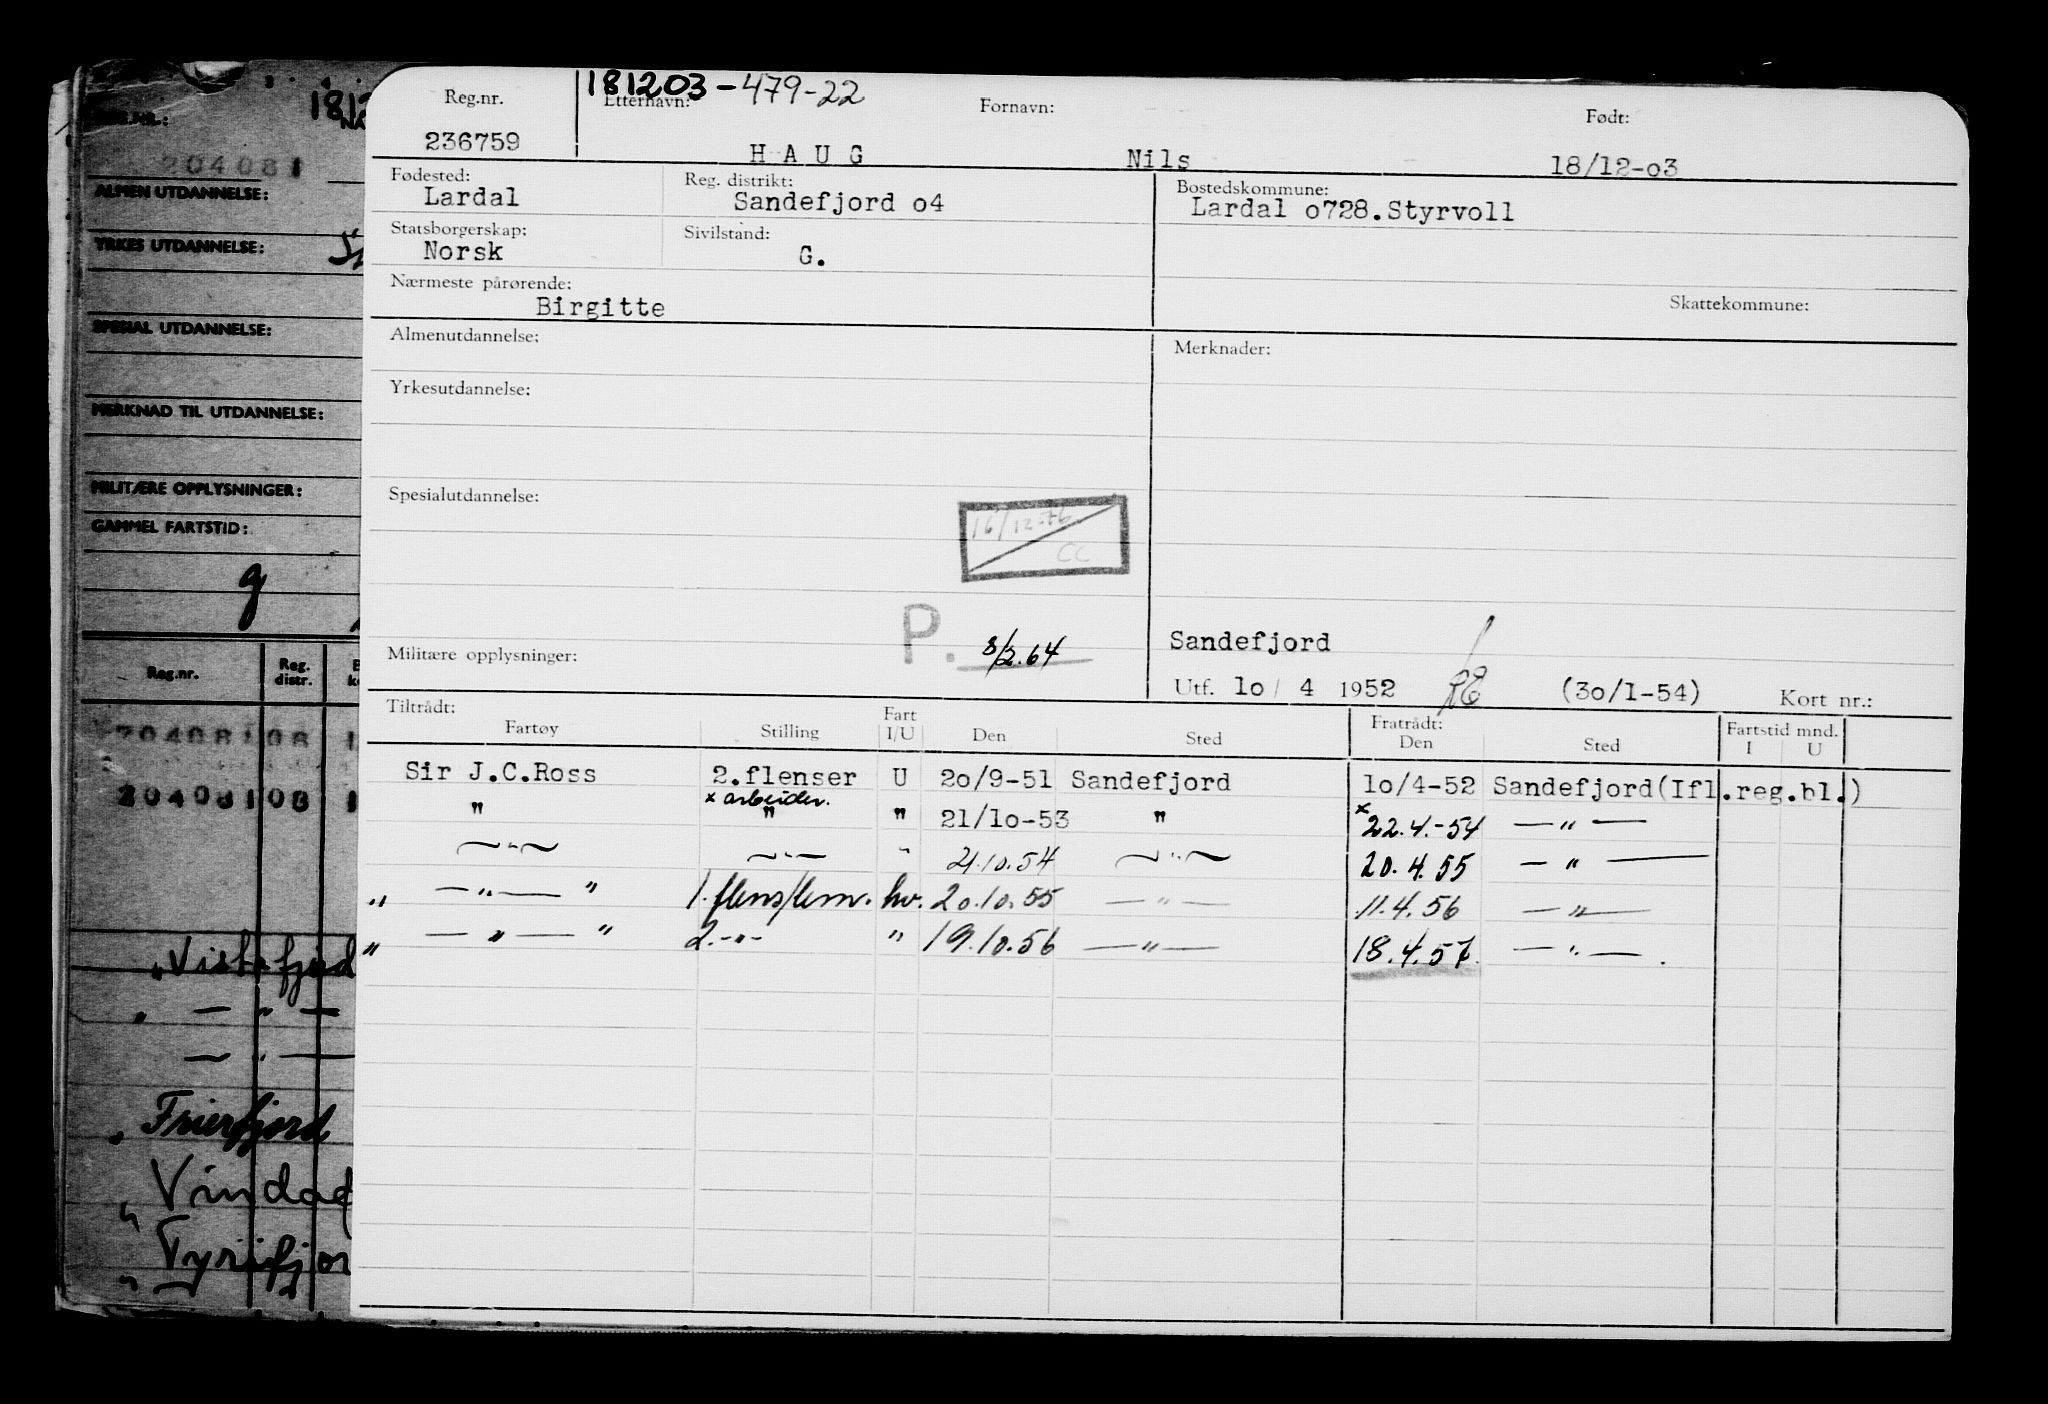 181203-479-22
Reg.nr. Etternavn: Fornavn: Født:
236759 HAUG Nils 18/12-o3
Fødested: Reg. distrikt: Bostedskommune:
Lardal Sandefjord o4 Lardal o728.Styrvoll
Statsborgerskap: Sivilstand:
Norsk G.
Nærmeste pårørende: Skattekommune:
Birgitte
Almenutdannelse: Merknader:
Yrkesutdannelse:
Spesialutdannelse:
16/12-76
CC
P. 3/2.64
Militære opplysninger:
Sandefjord
Utf. 1o/ 4 1952 (3o/1-54) Kort nr.:
Tiltrådt: Fratrådt: Fartstid mnd.
Fartøy Stilling Fart I/U Den Sted Den Sted I U
Sir J.C.Ross 2.flenser U 2o/9-51 Sandefjord 1o/4-52 Sandefjord(Ifl.reg.bl.)
x arbeider.
" " " 21/1o-53 " x 22.4.-54 — " —
— " — — " — " 21.10.54 — " — 20.4.55 — " —
" — " — " 1. flens/lem. hv. 20.10.55 — " — 11.4.56 — " —
" — " — " 2. - " - " 19.10.56 — " — 18.4.57. — " — .
REG.NR.: 1812
NA
204081
ALMEN UTDANNELSE:
YRKES UTDANNELSE:
SPESIAL UTDANNELSE:
MERKNAD TIL UTDANNELSE:
MILITÆRE OPPLYSNINGER:
GAMMEL FARTSTID:
g
Reg.nr. Reg. distr.
20408108 1
20408108 1
" Vistafjord
" — " —
— " —
" Frierfjord
" Vindaf
" Tyrifjor